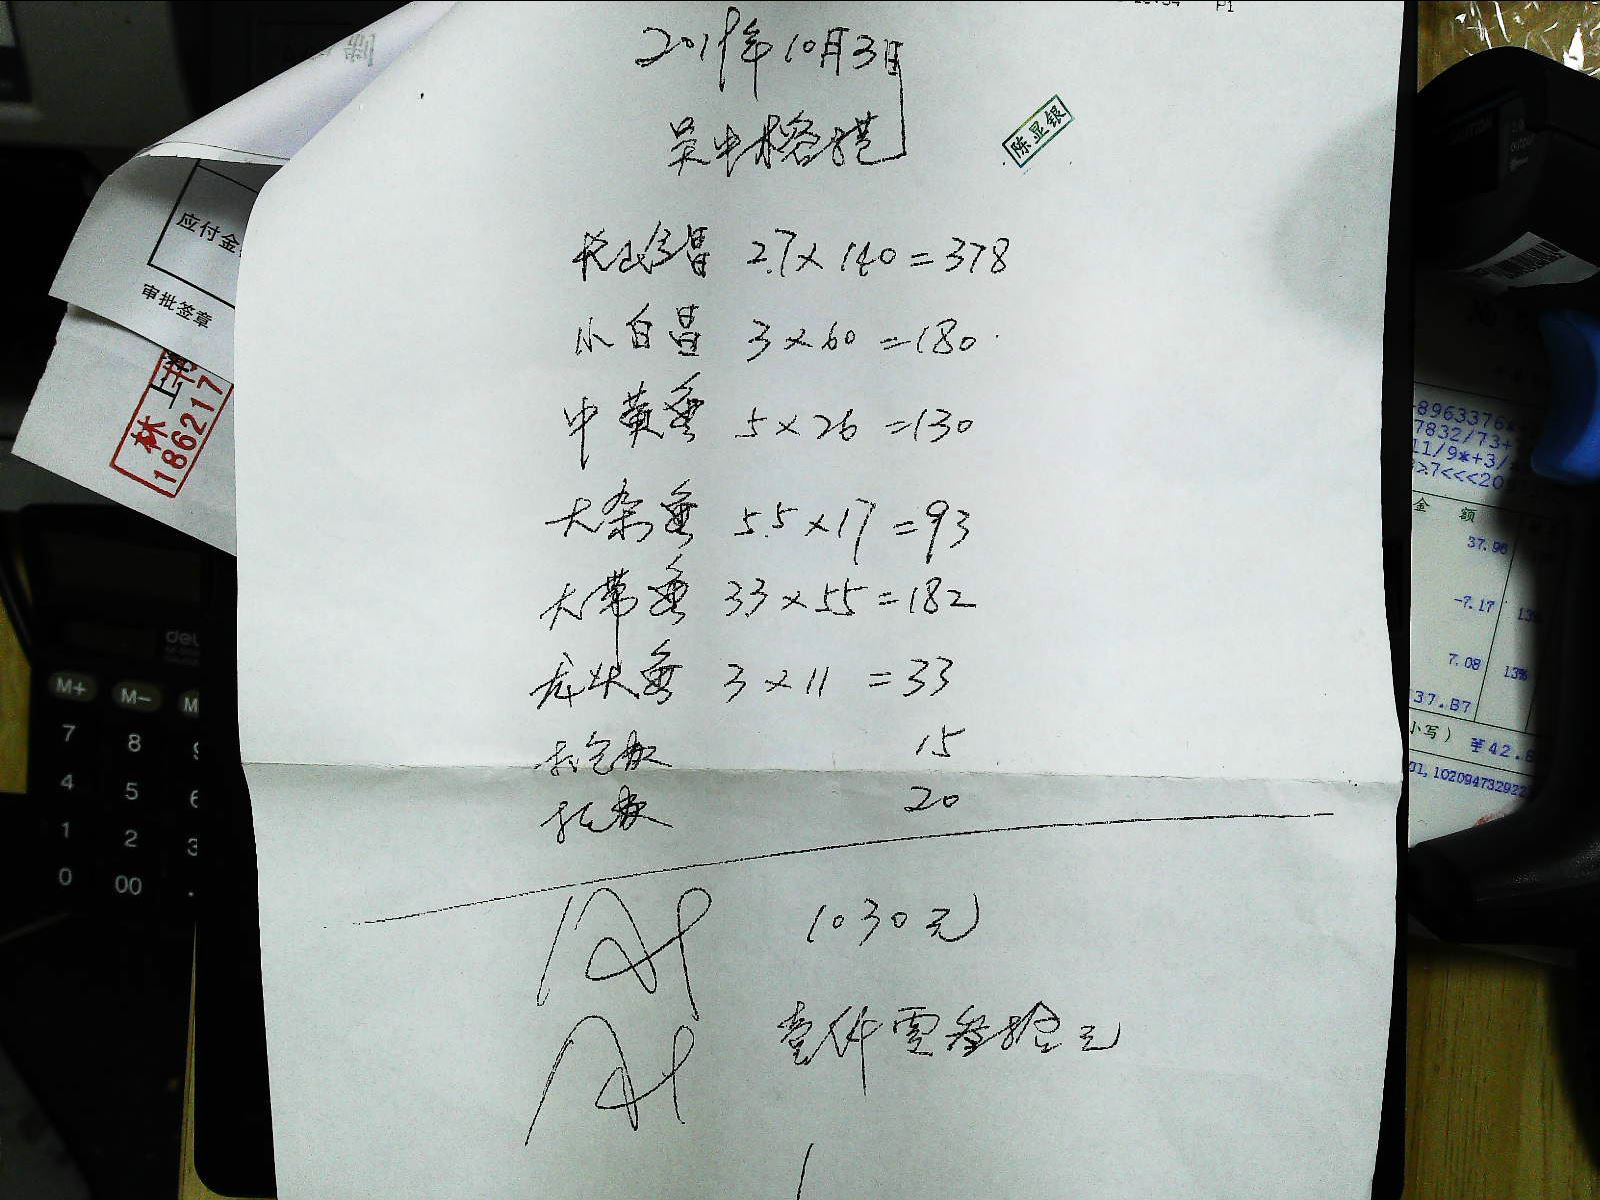 P1
2019年10月3日
陈显银
2.7×140=378
小白 3×60=180
中黄鱼 5×26=130
大杂鱼 5.5×17=93
大带鱼 33×55=182
龙头鱼 3×11=33
15
20
1030元
壹仟零叁拾元
应付金
审批签章
林上
186217
deli
M+ M-
7 8 9
4 5 6
1 2 3
0 00 .
-8963376*
7832/73+
11/9*+3/
>7<<<20
金 额
37.96
-7.17 13%
7.08 13%
37.87
小写） ¥42.8
01,102094732922